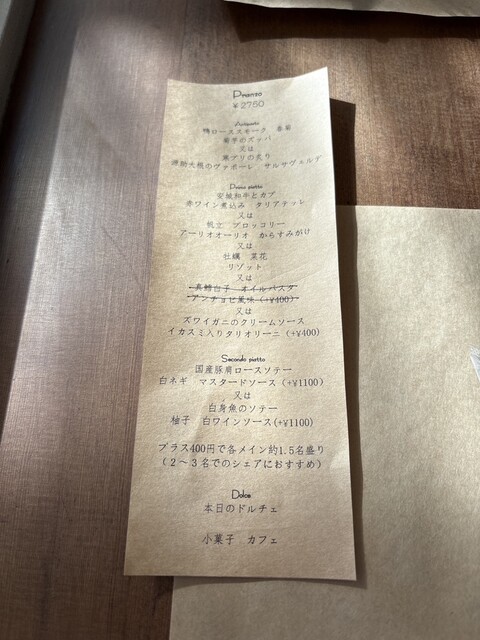 Pranzo
¥2750
Antipasti
鴨ローススモーク 春菊
菊芋のズッパ
又は
寒ブリの炙り
源助大根のヴァポーレ サルサヴェルデ
Primo piatto
安城和牛とカブ
赤ワイン煮込み タリアテッレ
又は
帆立 ブロッコリー
アーリオオーリオ からすみがけ
又は
牡蠣 菜花
リゾット
又は
真鱈白子 オイルパスタ
アンチョビ風味(+¥400)
又は
ズワイガニのクリームソース
イカスミ入りタリオリーニ(+¥400)
Secondo piatto
国産豚肩ロースソテー
白ネギ マスタードソース(+¥1100)
又は
白身魚のソテー
柚子 白ワインソース(+¥1100)
プラス400円で各メイン約1.5名盛り
(2～3名でのシェアにおすすめ)
Dolce
本日のドルチェ
小菓子 カフェ